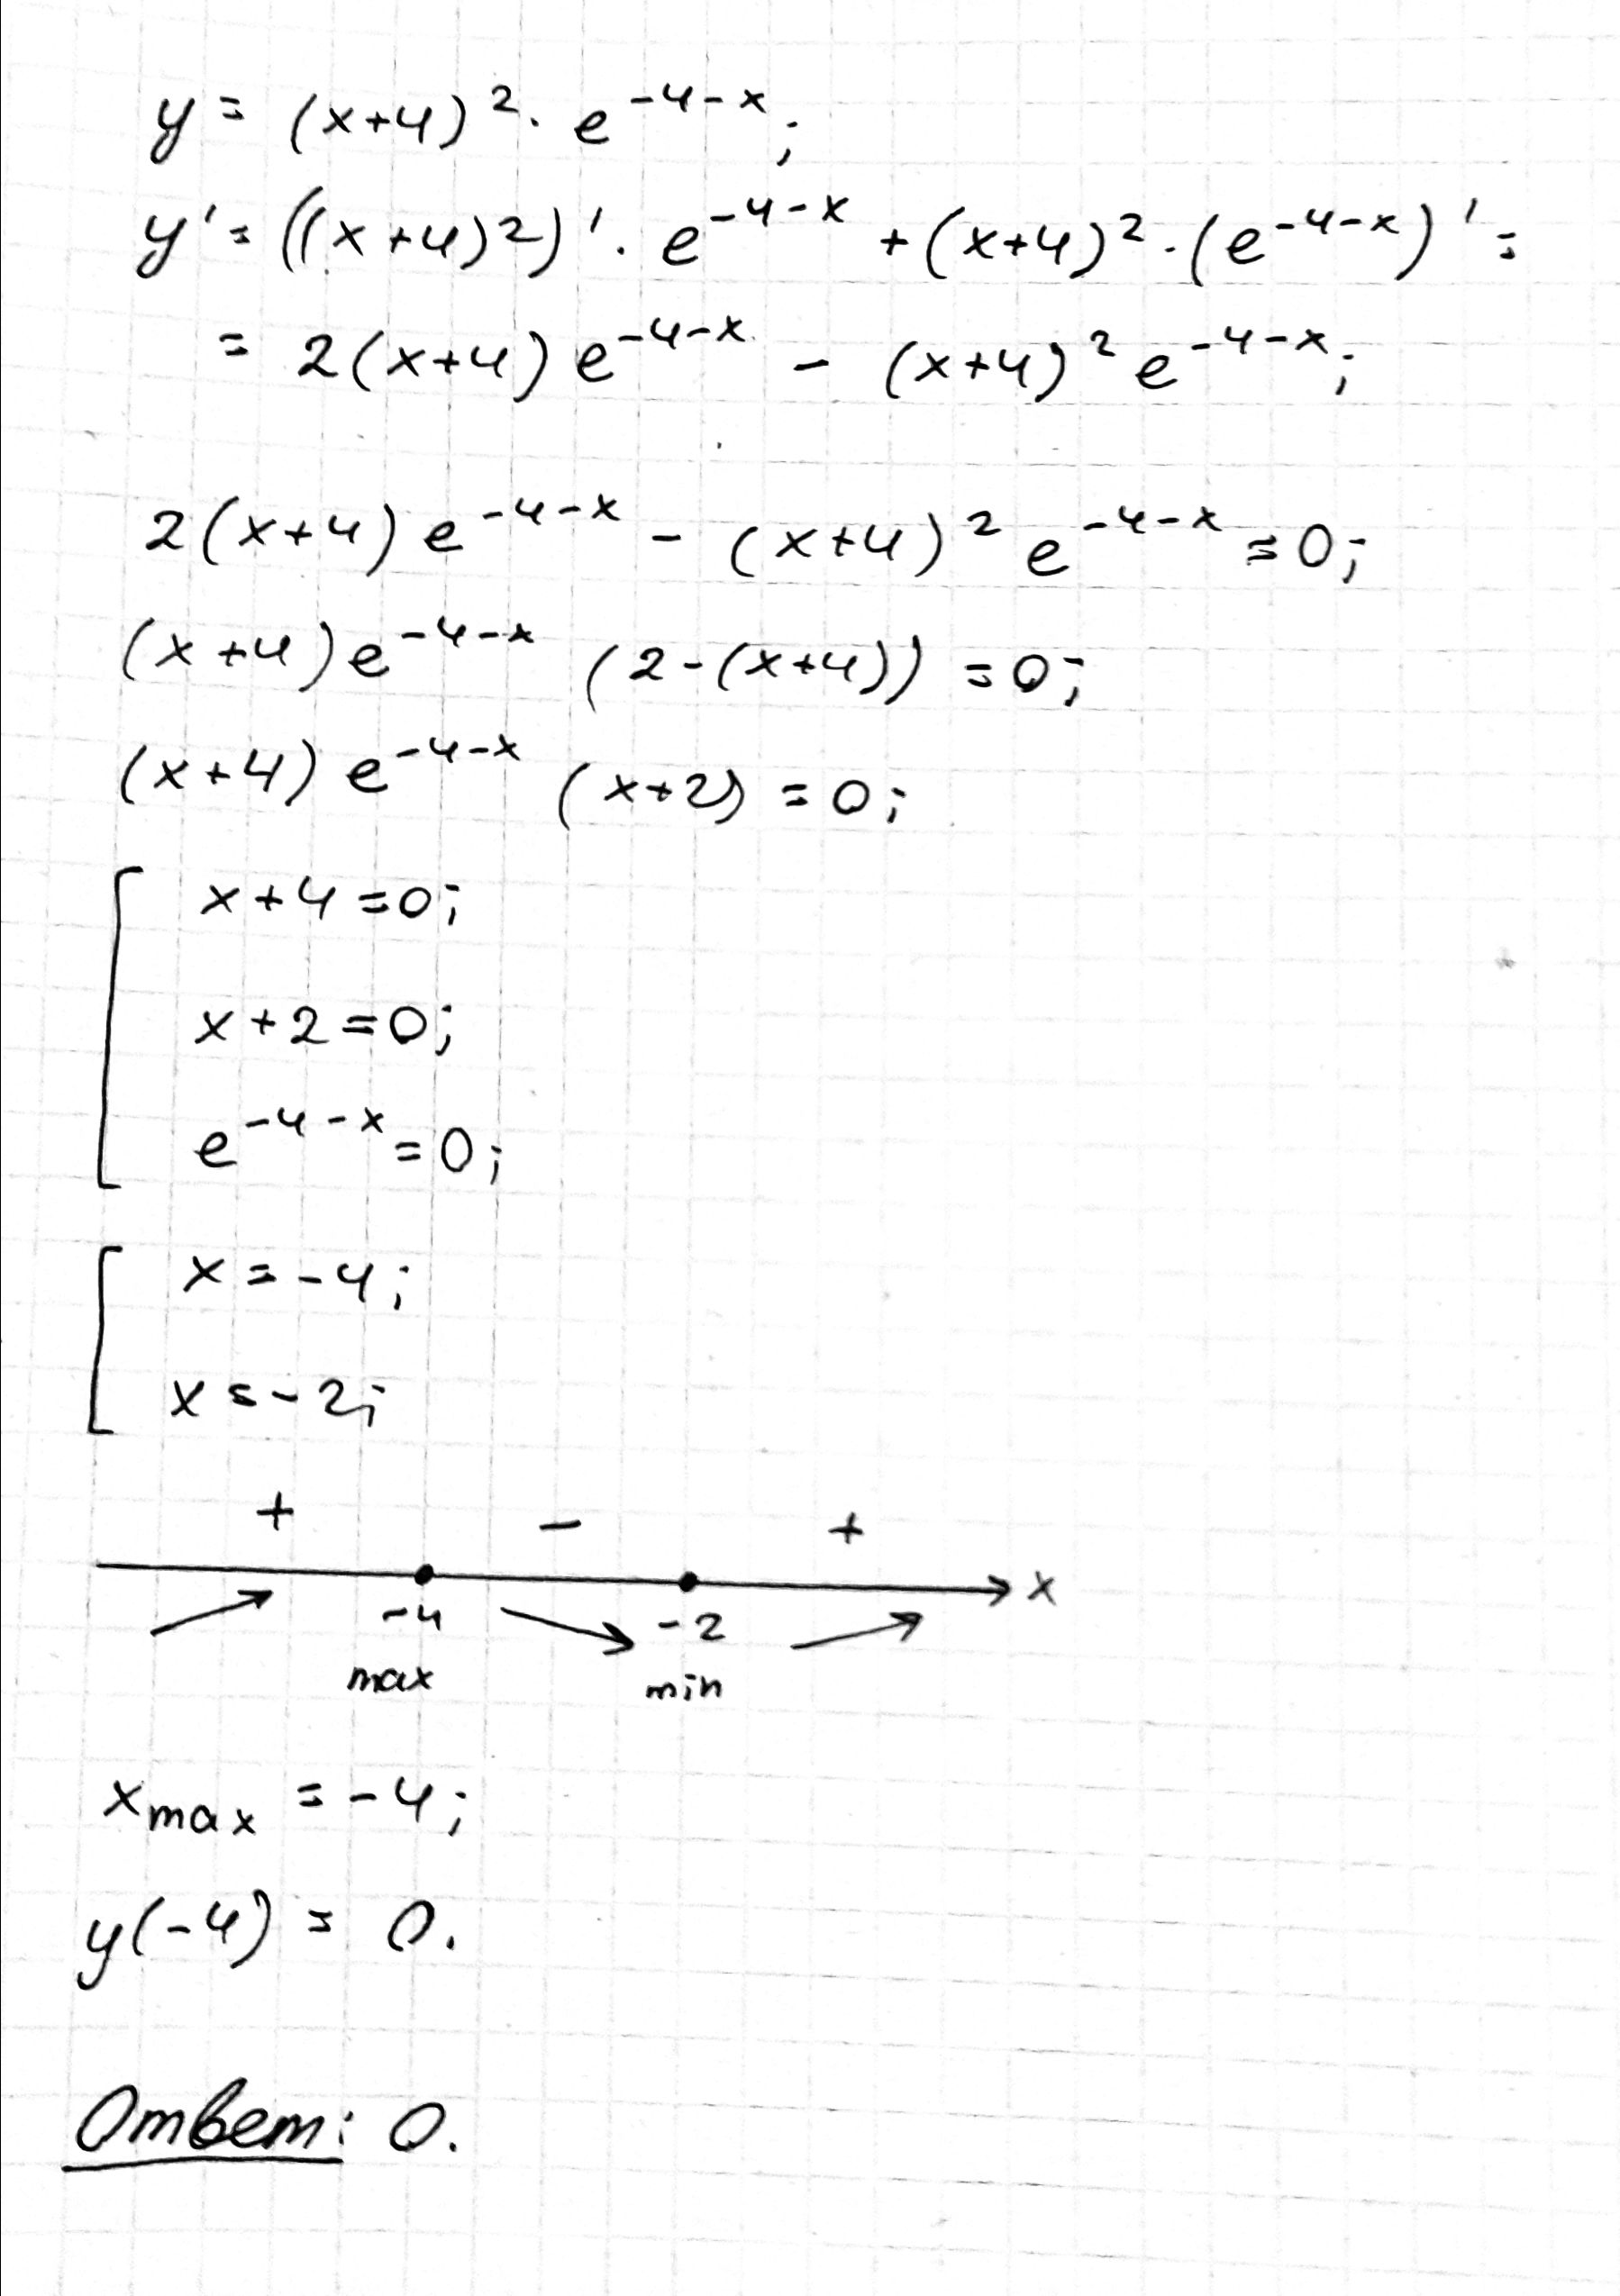 y = (x+4)²· e^{-4-x};
y' = ((x+4)²)' · e^{-4-x} + (x+4)² · (e^{-4-x})' =
= 2(x+4) e^{-4-x} - (x+4)² e^{-4-x};
2(x+4) e^{-4-x} - (x+4)² e^{-4-x} = 0;
(x+4) e^{-4-x} (2-(x+4)) = 0;
(x+4) e^{-4-x} (x+2) = 0;
x+4=0;
x+2=0;
e^{-4-x}=0;
x = -4;
x = -2;
+ - +
-4 -2 x
max min
x_{max} = -4;
y(-4) = 0.
Ответ: 0.